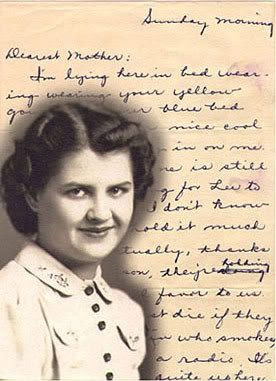 Sunday Morning
Dearest Mother:
I'm lying here in bed wear-
ing wearing your yellow
blue bed
nice cool
in on me.
is still
for her to
I don't know
old it much
tually, thanks
son, they're holding
favor to us.
st die if they
who smokes
a radio. It's
quite us here